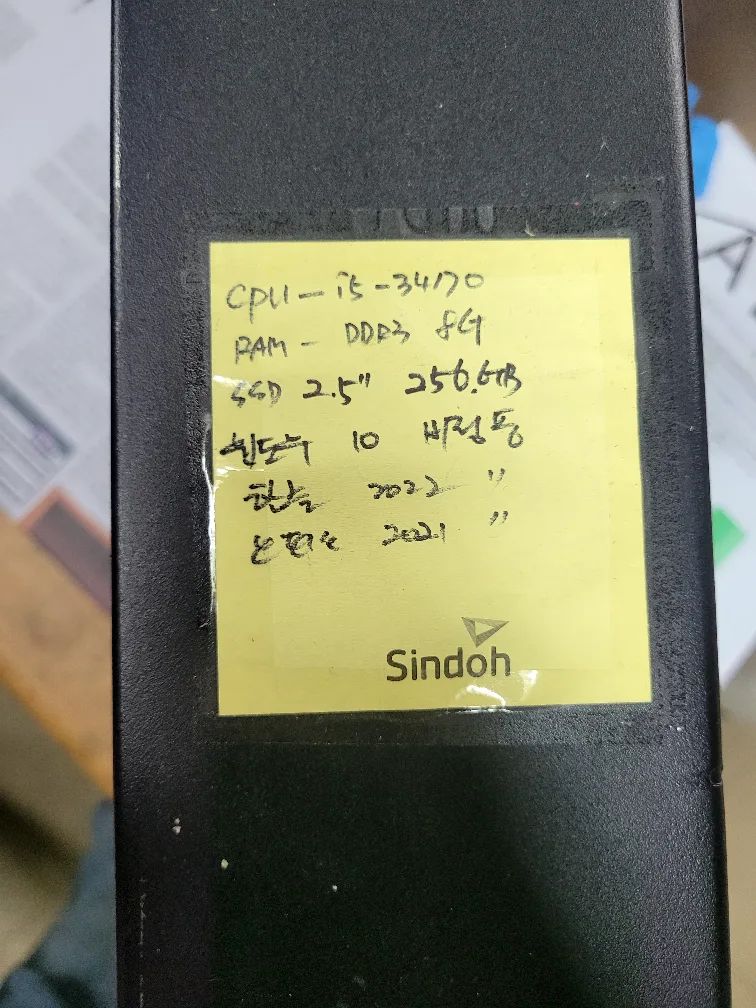 CPU - i5 - 34170
RAM - DDR3 8G
SSD 2.5" 256.GB
윈도우 10 비정품
한글 2022 "
오피스 2021 "
Sindoh